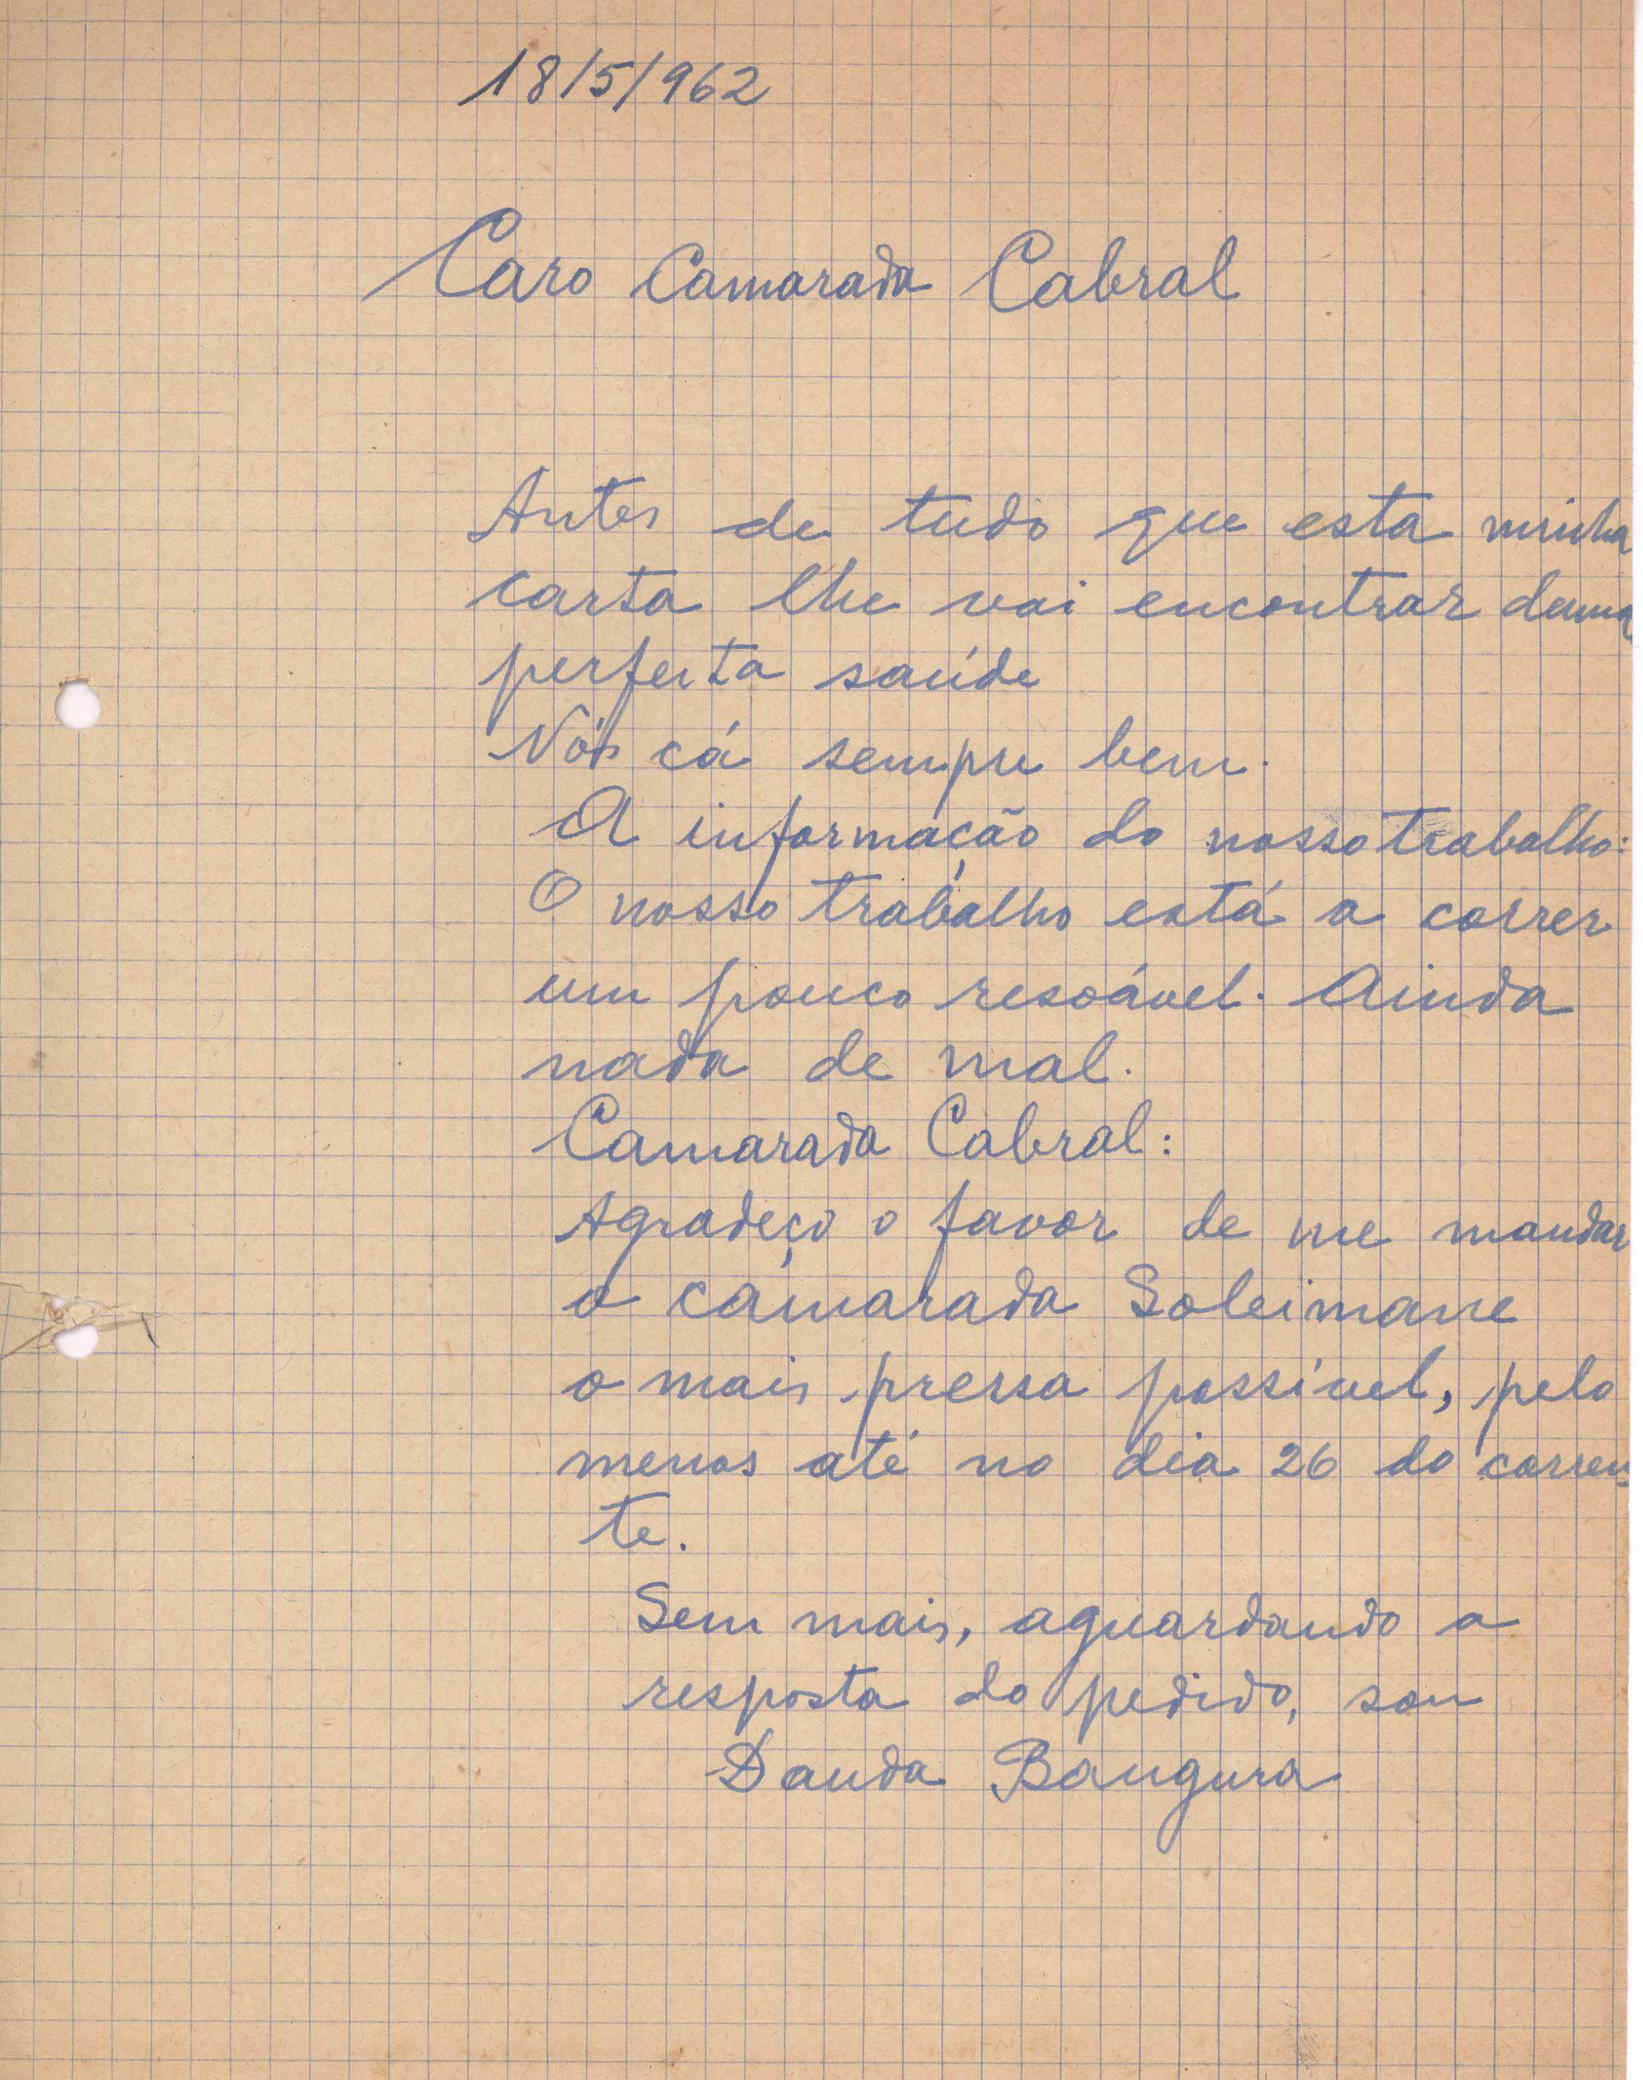 18/5/962
Caro Camarada Cabral
Antes de tudo que esta minha
carta lhe vai encontrar duma
perfeita saúde
Nós cá sempre bem.
A informação do nosso trabalho:
O nosso trabalho está a correr
um pouco resoável. Ainda
nada de mal.
Camarada Cabral:
Agradeço o favor de me mandar
o camarada Soleimane
o mais pressa possível, pelo
menos até no dia 26 do corren-
te.
Sem mais, aguardando a
resposta do pedido, sou
Dauda Bangura